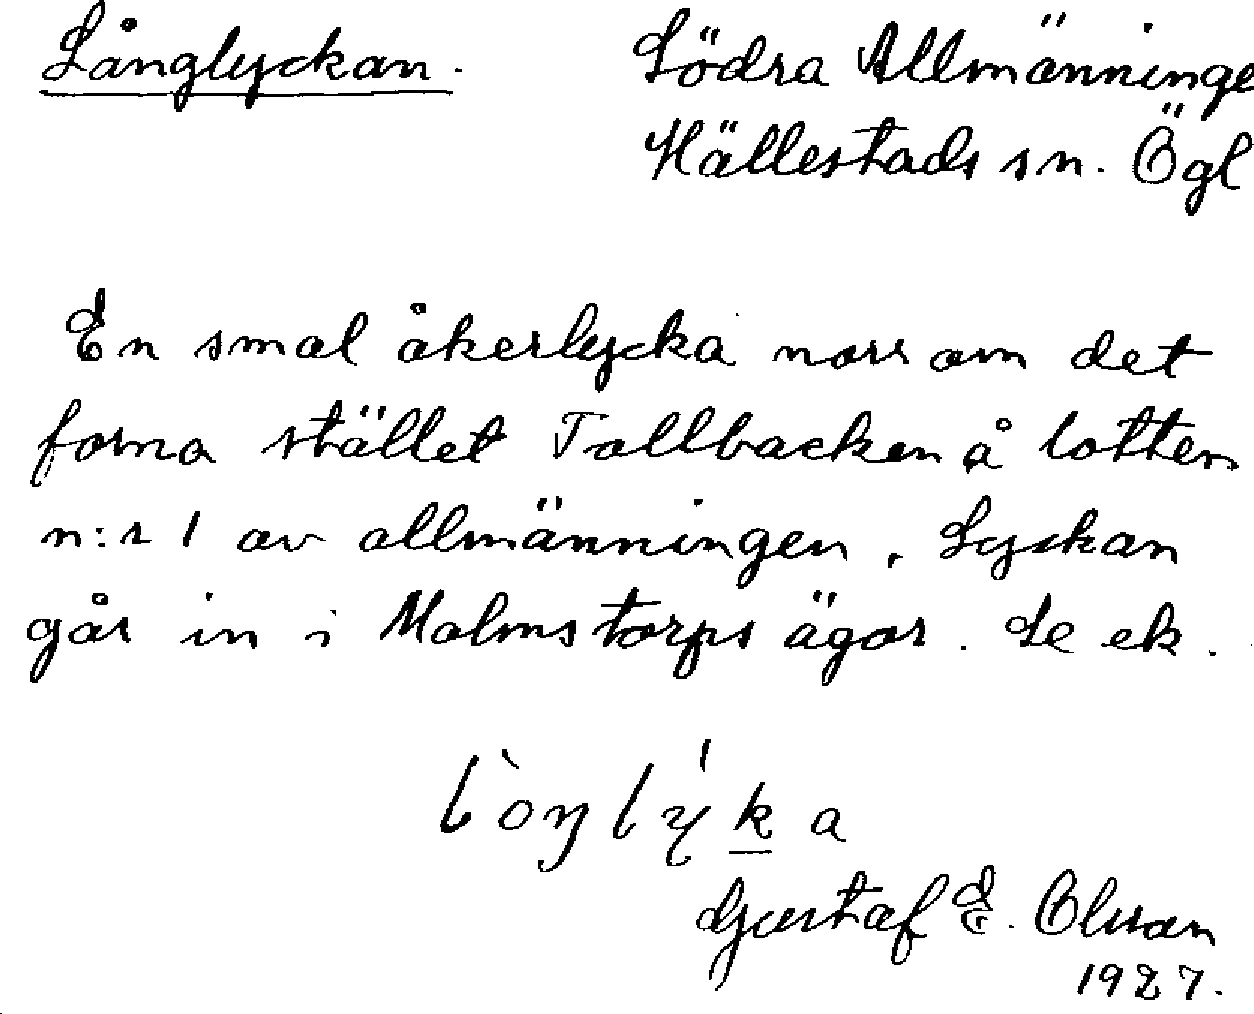 Långlyckan.
Södra Allmänninge
Hällestads sn. Ögl
En smal åkerlycka norr om det
forna stället Tallbacken å lotten
n:r 1 av allmänningen. Lyckan
går in i Malmstorps ägor. Se ek.
l`oŋlýka
Gustaf E. Olsson
1927.